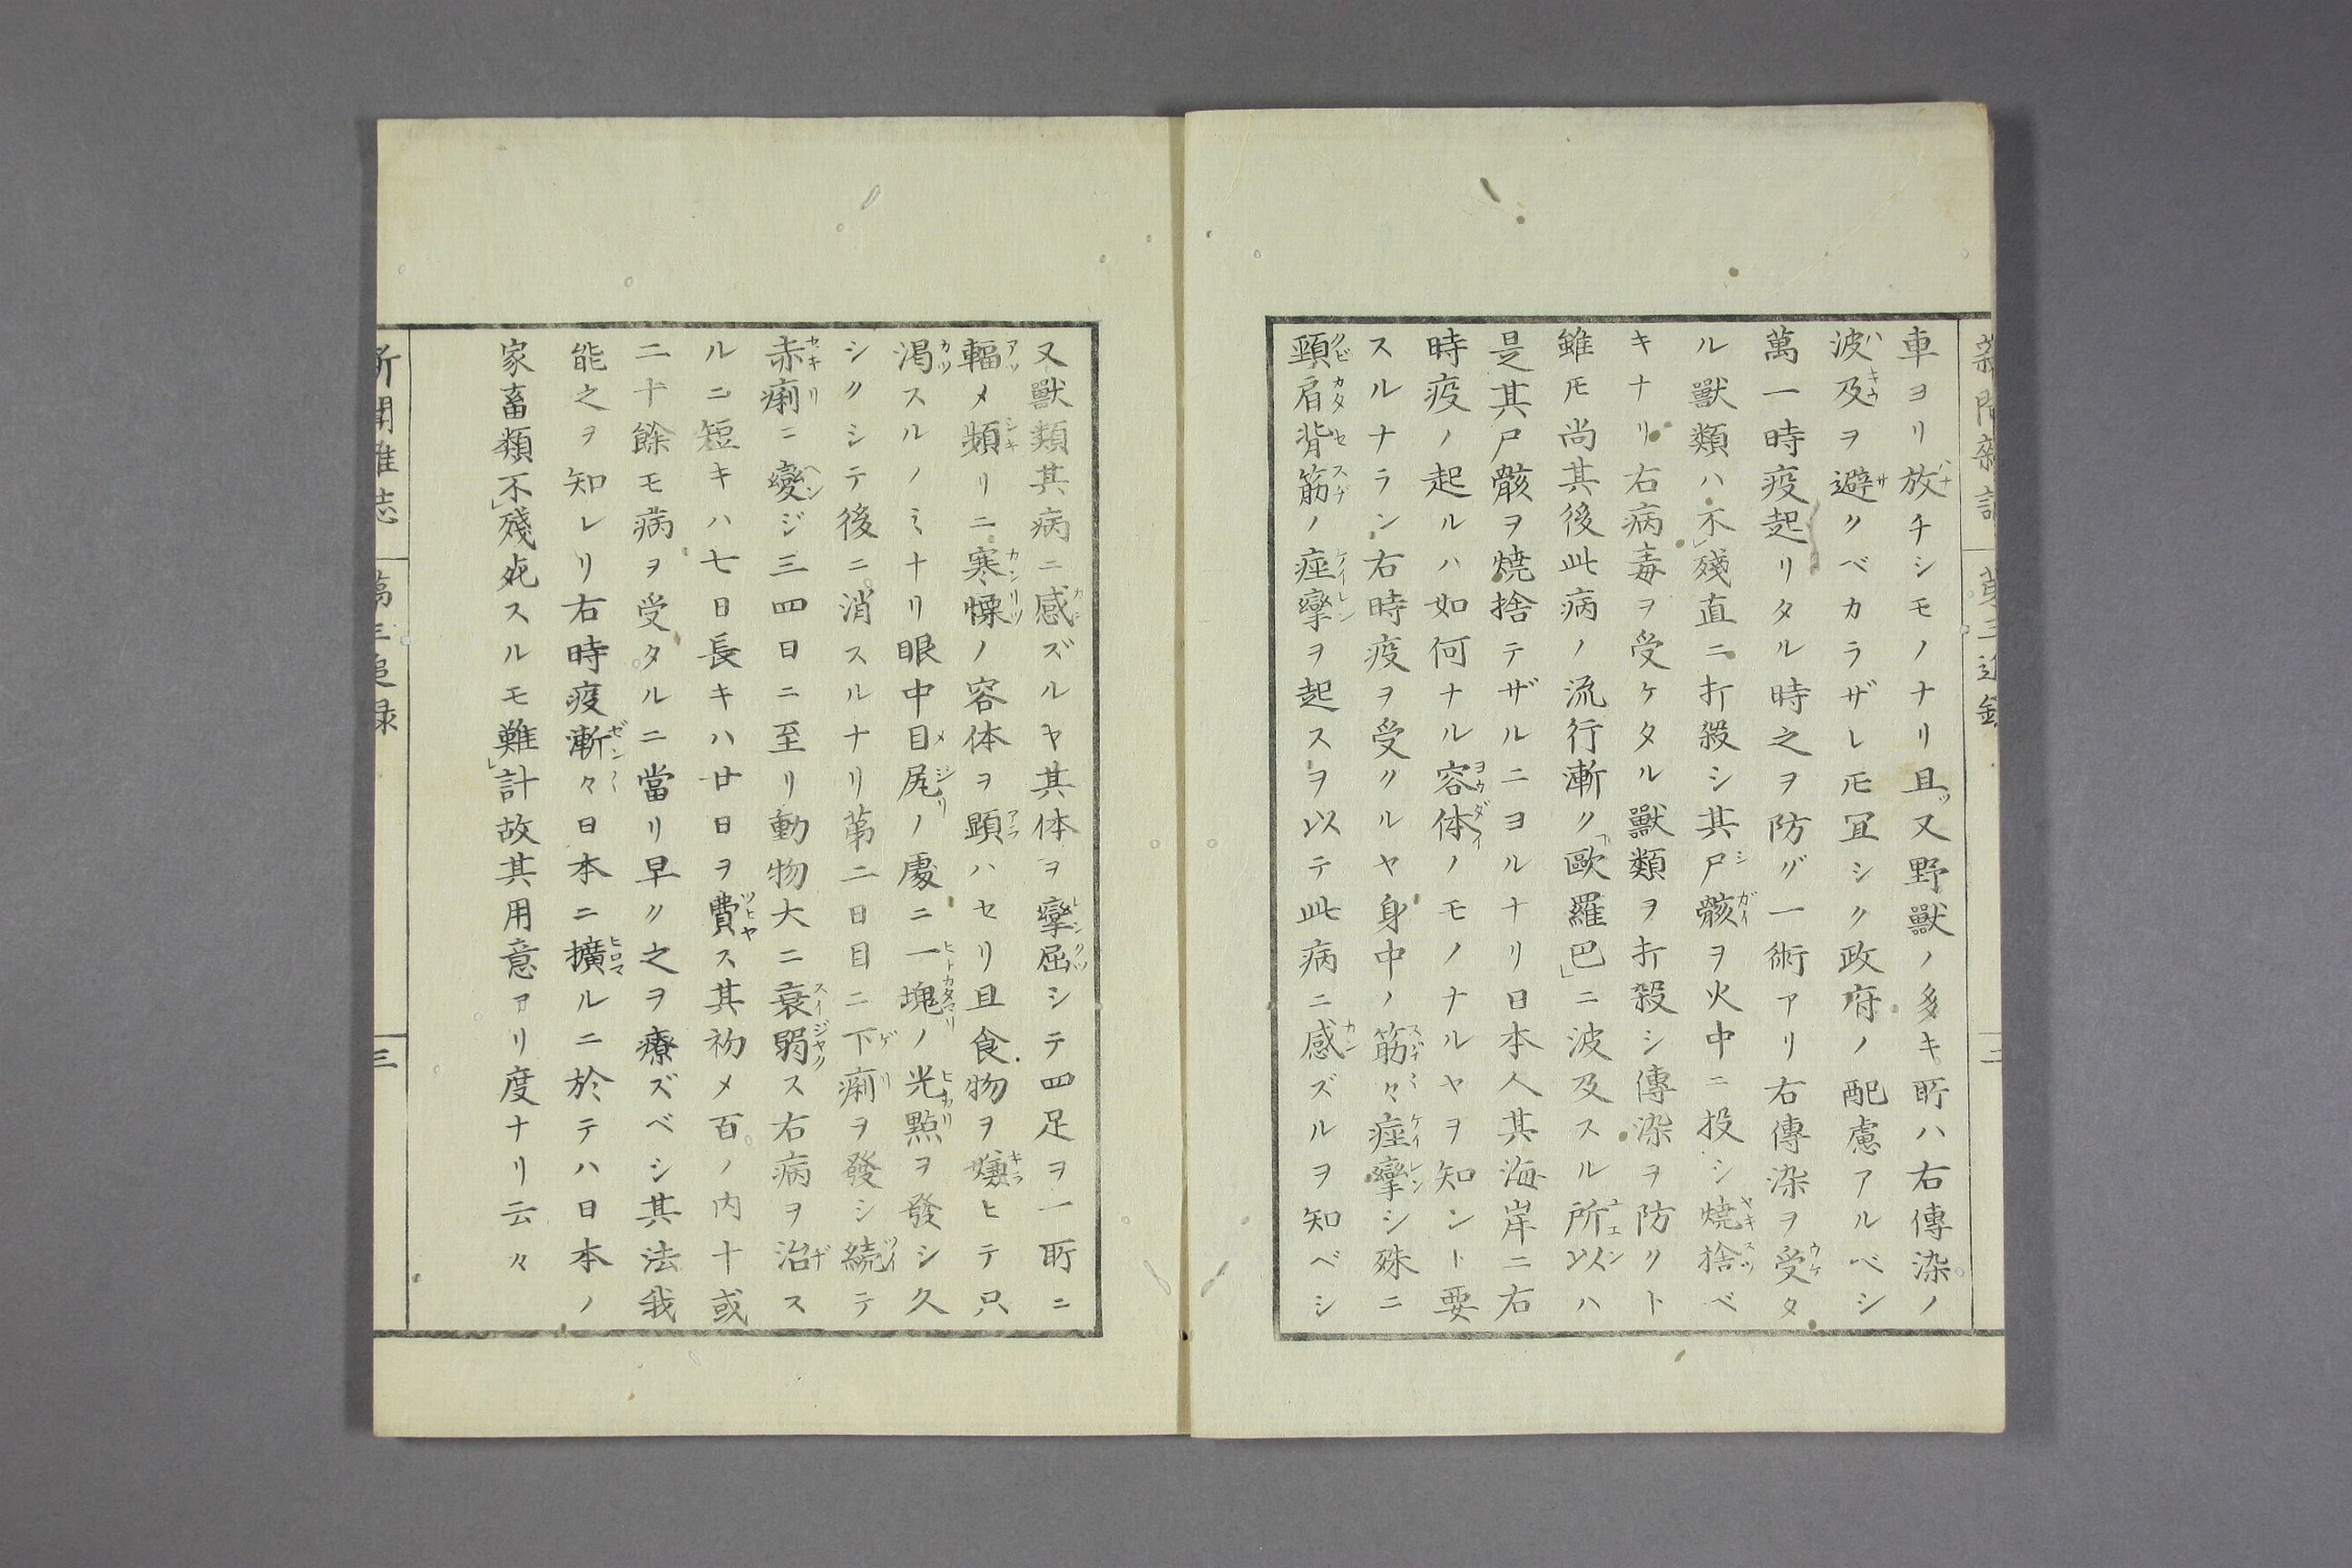 新聞雜誌 第三追録 二
車ヨリ放チシモノナリ且ツ又野獸ノ多キ所ハ右傳染ノ
波及ヲ避クベカラザレ𪜈冝シク政府ノ配慮アルベシ
萬一時疫起リタル時之ヲ防グ一術アリ右傳染ヲ受タ
ル獸類ハ不レ殘直ニ打殺シ其尸骸ヲ火中ニ投シ焼捨ベ
キナリ右病毒ヲ受ケタル獸類ヲ打殺シ傳染ヲ防クト
雖𪜈尚其後此病ノ流行漸ク「歐羅巴」ニ波及スル所以ハ
是其尸骸ヲ焼捨テザルニヨルナリ日本人其海岸ニ右
時疫ノ起ルハ如何ナル容体ノモノナルヤヲ知ント要
スルナラン右時疫ヲ受クルヤ身中ノ筋々痙攣シ殊ニ
頸肩背筋ノ痙攣ヲ起スヲ以テ此病ニ感ズルヲ知ベシ
又獸類其病ニ感ズルヤ其体ヲ攣屈シテ四足ヲ一所ニ
輻メ頻リニ寒慄ノ容体ヲ顕ハセリ且食物ヲ嫌ヒテ只
渇スルノミナリ眼中目尻ノ處ニ一塊ノ光點ヲ發シ久
シクシテ後ニ消スルナリ第二日目ニ下痢ヲ發シ続テ
赤痢ニ變ジ三四日ニ至リ動物大ニ衰弱ス右病ヲ治ス
ルニ短キハ七日長キハ廿日ヲ費ス其初メ百ノ内十或
二十餘モ病ヲ受タルニ當リ早ク之ヲ療ズベシ其法我
能之ヲ知レリ右時疫漸々日本ニ擴ルニ於テハ日本ノ
家畜類不レ殘死スルモ難レ計故其用意アリ度ナリ云々
新聞雜誌 第三追録 三